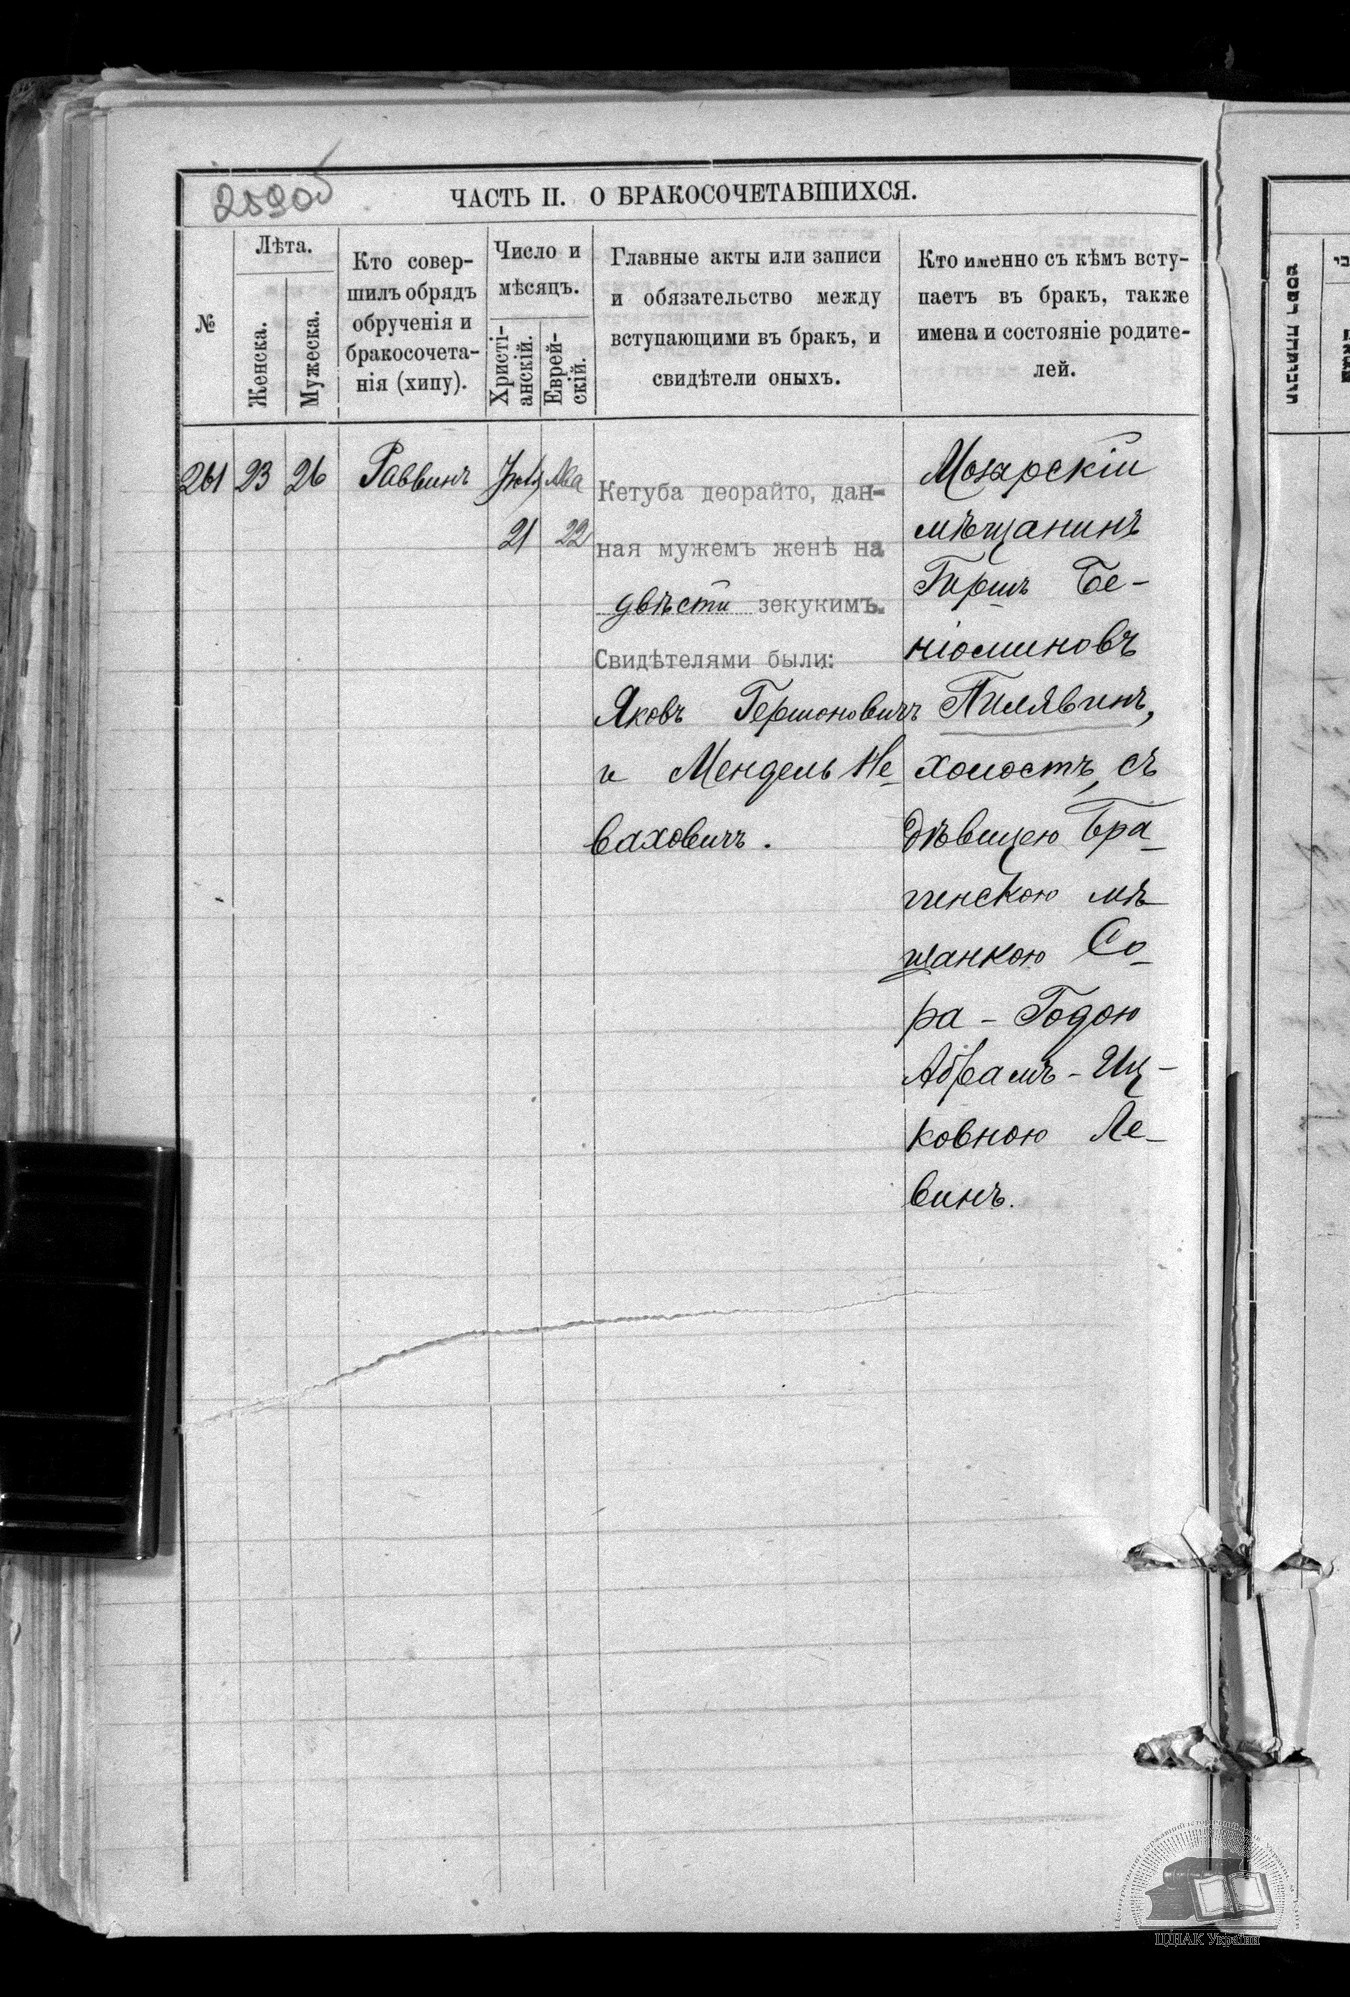 259об
ЧАСТЬ II. О БРАКОСОЧЕТАВШИХСЯ.
№
Лѣта.
Женска.
Мужеска.
Кто совер-
шилъ обрядъ
обрученія и
бракосочета-
нія (хипу).
Число и
мѣсяцъ.
Христі-
анскій.
Еврей-
скій.
Главные акты или записи
и обязательство между
вступающими въ бракъ, и
свидѣтели оныхъ.
Кто именно съ кѣмъ всту-
паетъ въ бракъ, также
имена и состояніе родите-
лей.
261
23
26
Раввинъ
21
22
Кетуба деорайто, дан-
ная мужемъ женѣ на
двѣсти зекукимъ.
Свидѣтелями были:
Яковъ Гершоновичъ
и Мендель Не-
ваховичъ.
мѣщанинъ
Гиршъ Бе-
ніоминовъ
Пилявинъ,
холостъ, съ
дѣвицею Бра-
гинскою мѣ-
щанкою Со-
ра-Годою
Абрамъ-Иц-
ковною Ле-
винъ.
ЦДІАК України